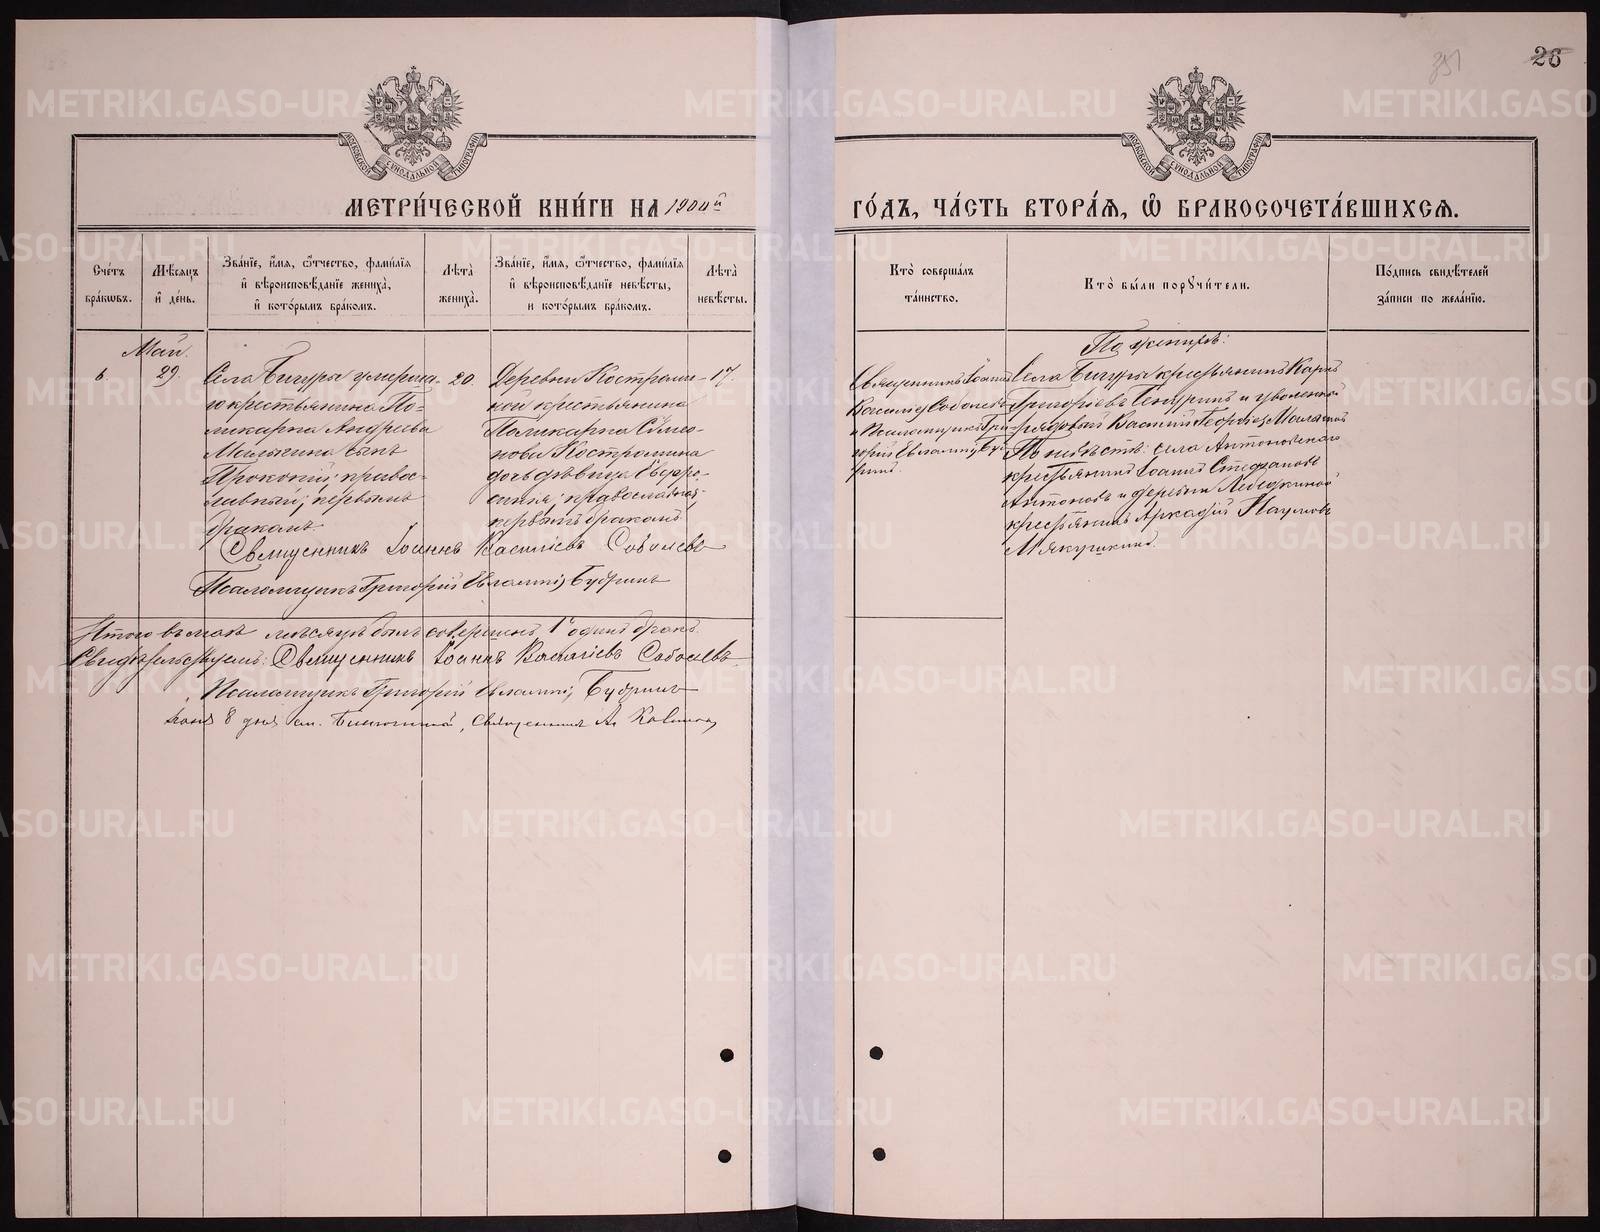 26
351
МОСКОВСКОЙ СѴНОДАЛЬНОЙ ТИПОГРАФІИ
МОСКОВСКОЙ СѴНОДАЛЬНОЙ ТИПОГРАФІИ
МЕТРИ́ЧЕСКОЙ КНИ́ГИ НА 1904й
ГО́ДЪ, ЧА́СТЬ ВТОРА́Я, Ѽ БРАКОСОЧЕТА́ВШИХСЯ.
Сче́тъ
бра́кѡвъ.
Мѣ́сяцъ
и҆ де́нь.
Зва́нїе, и҆́мя, ѻ҆́тчество, фами́лїя
и҆ вѣроисповѣ́данїе жениха̀,
и҆ кото́рымъ бра́комъ.
Лѣ́та̀
жениха̀.
Зва́нїе, и҆́мя, ѻ҆́тчество, фами́лїя
и҆ вѣроисповѣ́данїе невѣ́сты,
и кото́рымъ бра́комъ.
Лѣ́та̀
невѣ́сты.
Кто̀ соверша́лъ
та́инство.
Кто̀ бы́ли порꙋчи́тели.
По́дпись свидѣ́телей
за́писи по жела́нїю.
Май.
6.
29.
Села Бичуры умерша-
го крестьянина По-
ликарпа Андреева
Малыгина сынъ
Прокопій; правос-
лавный; первымъ
бракомъ
20.
Деревни Костроми-
ной крестьянина
Поликарпа Симео-
нова Костромина
дочь дѣвица Евфро-
синія; православная;
первымъ бракомъ
17.
Священникъ Іоаннъ
Василіевъ Соболевъ
и Псаломщикъ Гри-
горій Евлампіевъ Бу-
дринъ.
По женихѣ:
Села Бичуры крестьянинъ Карпъ
Григоріевъ и уволенный
рядовой Василій Георгіевъ
По невѣстѣ: села Антоновскаго
крестьянинъ Іоаннъ Стефановъ
Антоновъ и деревни Лебедкиной
крестьянинъ Аркадій Наумовъ
Мякушкинъ.
Священникъ Іоаннъ Василіевъ Соболевъ
Псаломщикъ Григорій Евлампіевъ Будринъ
Итого въ маѣ мѣсяцѣ былъ совершенъ 1 одинъ бракъ.
Свидѣтельствуемъ: Священникъ Іоаннъ Василіевъ Соболевъ.
Псаломщикъ Григорій Евлампіевъ Будринъ
Іюня 8 дня священникъ А.